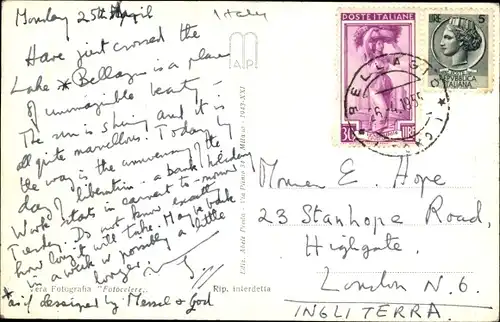 Monday 25th April
Italy
Have just crossed the
Lake * Bellagio is a place
of unimaginable beauty -
The sun is shining and it is
all quite marvellous! Today by
the way is the anniversary of the
day of liberation - a bank holiday
Work starts in earnest to-morrow
Tuesday. Do not know exactly
how long it will take. Maybe back
in a week or possibly a little
longer.
*as if designed by Messel & God
Vera Fotografia "Fotocelere"
Rip. interdetta
POSTE ITALIANE
30 LIRE
LIRE 5
REPUBBLICA
ITALIANA
BELLAGIO
E. Hope
23 Stanhope Road,
Highgate.
London N. 6.
INGLITERRA.